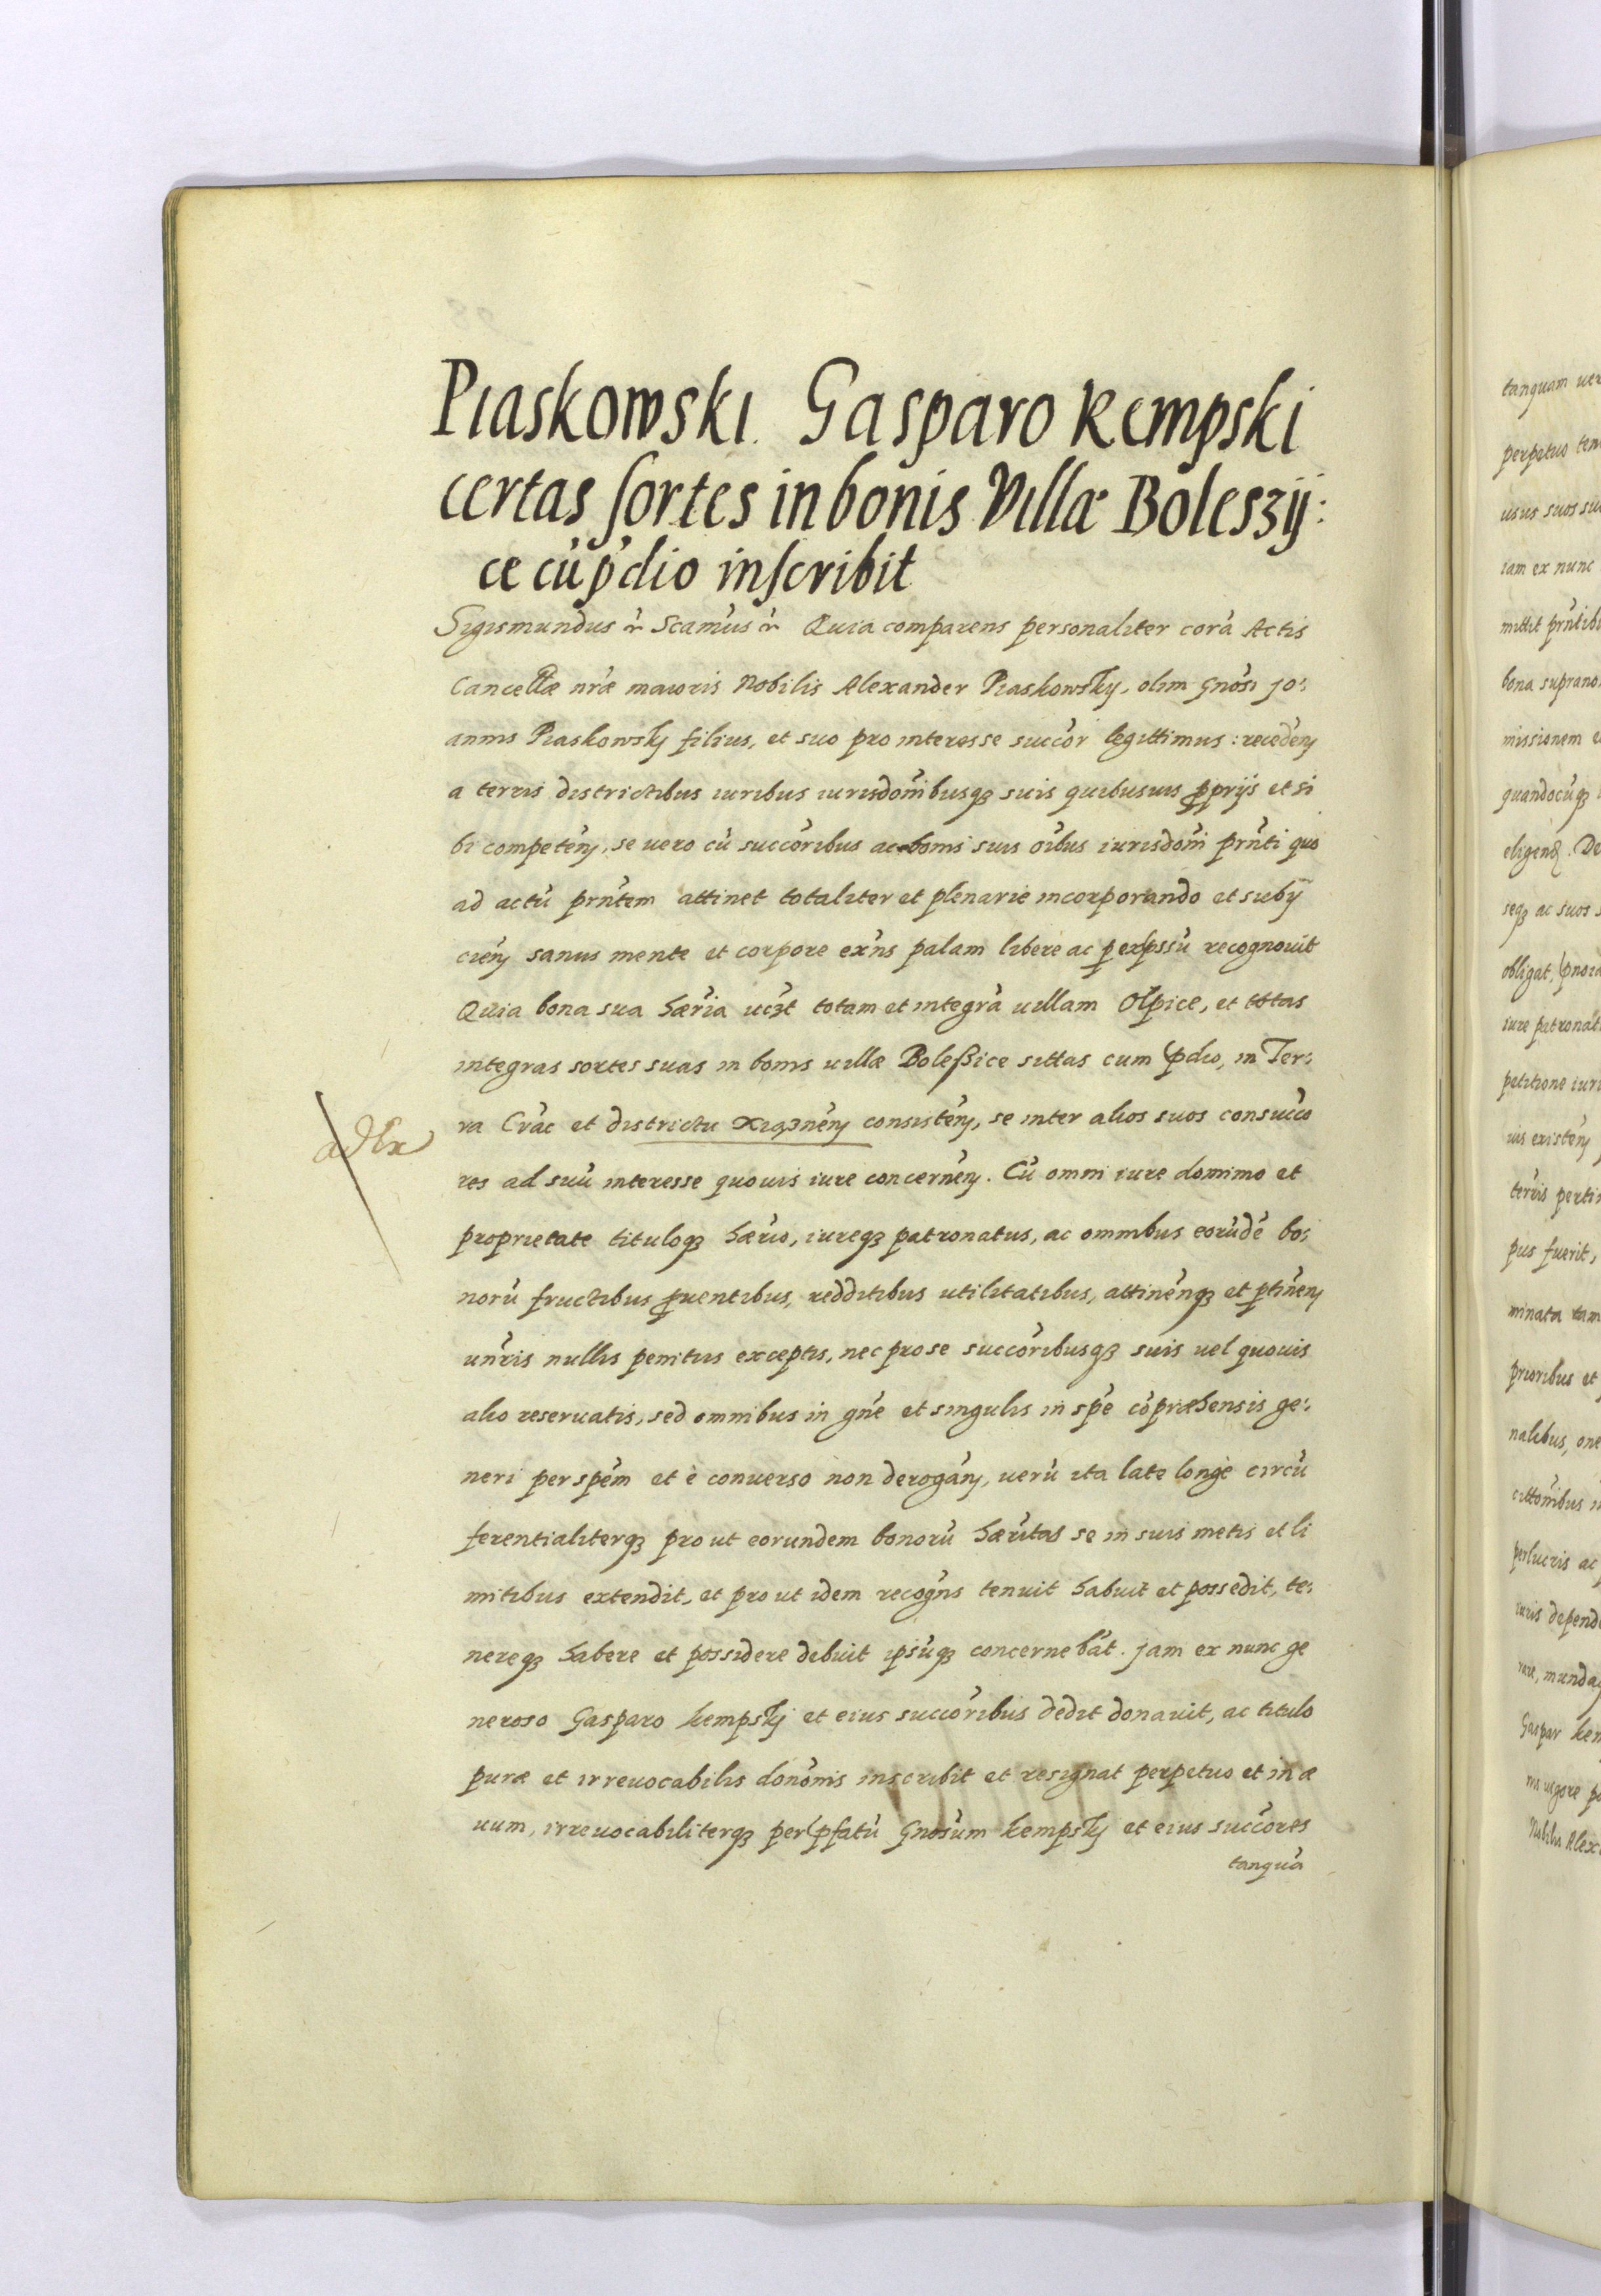 Piaskowski. Gasparo Kempski
certas sortes in bonis Villæ Boleszij:
ce cu̓ p̓dio inscribit
Sigismundus Scam̓us Quia comparens personaliter cora̓ Actis
Cancellæ nr̓æ maioris Nobilis Alexander Piaskowsky, olim Gno̓si Jo:
annis Piaskowsky filius, et suo pro interesse succo̓r legittimus: recede̓ny
a terris districtibus iuribus iurisdo̓nibusqz suis quibusuis pprijs et si
bi compete̓ny, se uero cu̓ succo̓ribus ac bonis suis oi̓bus iurisdo̓ni prn̓ti quo
ad actu̓ prn̓tem attinet totaliter et plenarie incorporando et subij
cie̓ny sanus mente et corpore ex̓ns palam libere ac p expssu̓ recognouit
Quia bona sua hær̓ia uczt totam et integra̓ uillam Olpice, et totas
integras sortes suas in bonis uillæ Boleßice sittas cum pdio, in Ter:
ra Cra̓c et districtu Xiąznen̓y consiste̓ny, se inter alios suos consucco
res ad suu̓ interesse quouis iure concerne̓ny. Cu̓ omni iure dominio et
proprietate tituloqz hær̓io, iureqz patronatus, ac omnibus eoru̓de̓ bo:
noru̓ fructibus puentibus, redditibus utilitatibus, attine̓nqz et ptine̓ny
un̓ris nullis penitus exceptis, nec pro se succo̓ribusqz suis uel quouis
alio reseruatis, sed omnibus in gn̓e et singulis in spe̓ co̓præhensis ge:
neri per spe̓m et è conuerso non deroga̓ny, ueru̓ ita late longè circu̓
ferentialiterqz pro ut eorundem bonoru̓ hær̓itas se in suis metis et li
mitibus extendit, et pro ut idem recog̓ns tenuit habuit et possedit, te:
nereqz habere et possidere debuit ipsu̓qz concerneba̓t. Jam ex nunc ge
neroso Gasparo Kempsky et eius succo̓ribus dedit donauit, ac titulo
puræ et irreuocabilis dono̓nis inscribit et resignat perpetuo et in æ
uum, irreuocabiliterqz per pfatu̓ Gno̓sum Kempsky et eius succo̓res
tanqua̓
tanquam uer
perpetuo tem
usus suos su
iam ex nunc
mittit prn̓tibu
bona suprano
missionem e
quandocu̓qz
eligend. De
seqz ac suos s
obligat,
iure patronat
petitione iur
uis existe̓ny
ter̓ris perti
pus fuerit,
minata tam
prioribus et
nalibus, one
citto̓nibus
per lucris ac
iuris depend
rare, munda
Gaspar Kem
uigore
Nobilis Alex